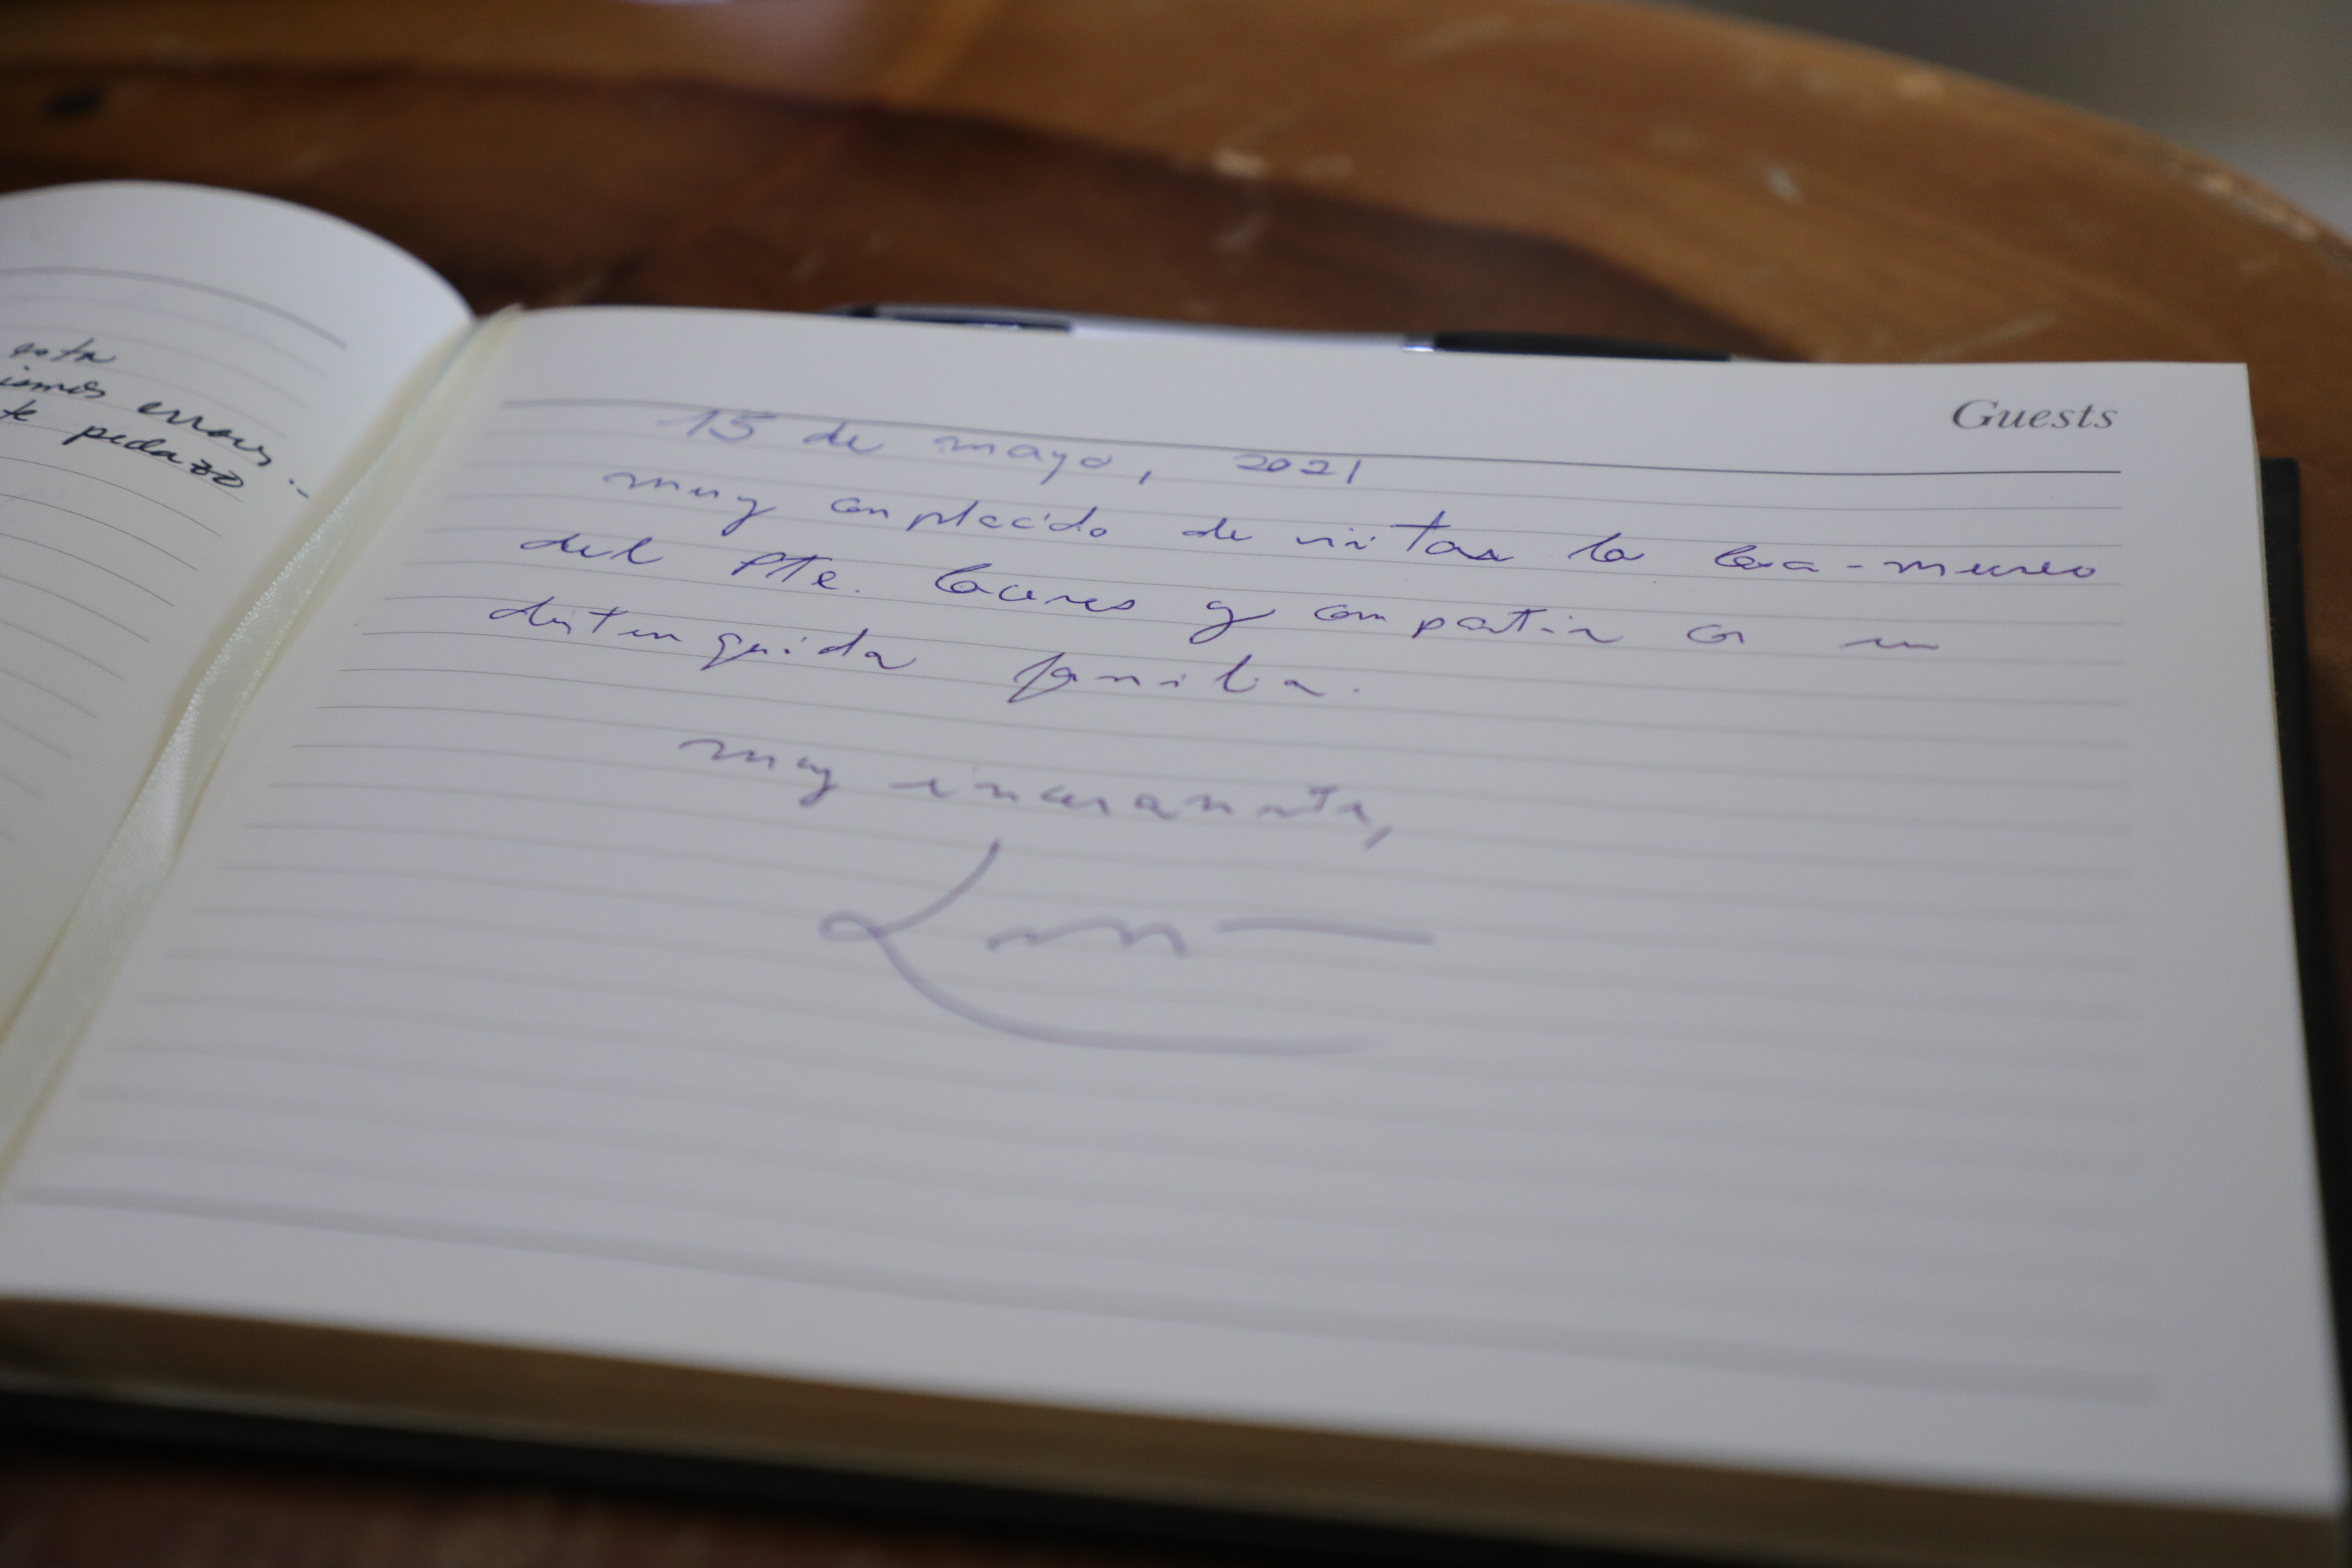 esta
errores..
te pedazo
Guests
15 de mayo, 2021
muy complacido de visitar la Casa-museo
del Pte. Cáceres y compartir con su
distinguida familia.
muy sinceramente,